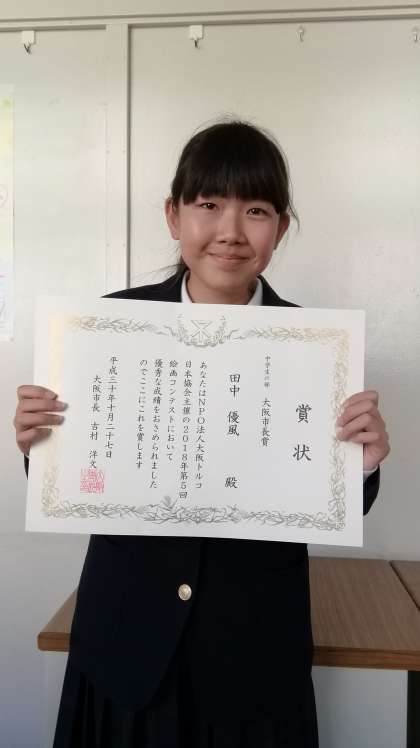 賞状
中学生の部 大阪市長賞
田中 優風 殿
あなたはNPO法人大阪トルコ
日本協会主催の2018年第5回
絵画コンテストにおいて
優秀な成績をおさめられました
のでここにこれを賞します
平成三十年十月二十七日
大阪市長 吉村 洋文